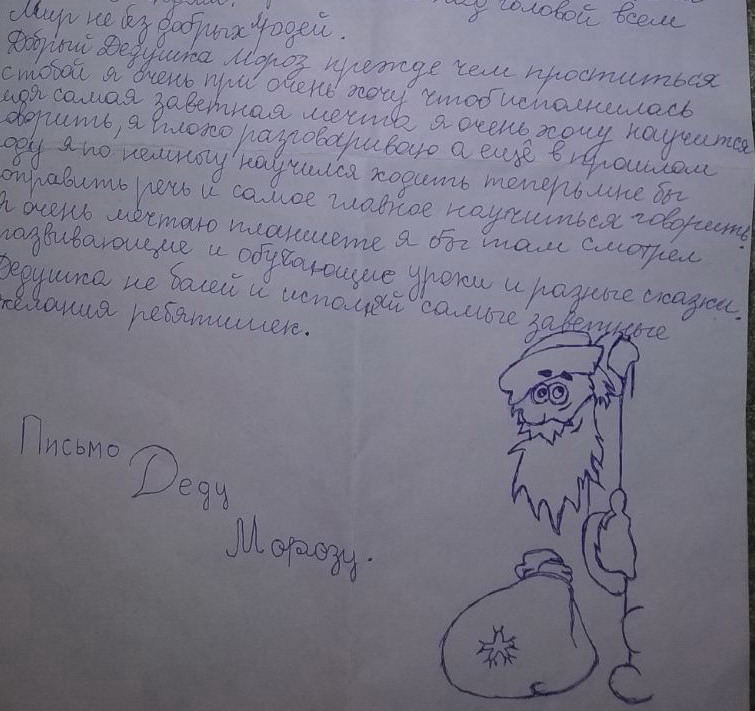 над головой всем
Мир не без добрых людей.
Добрый Дедушка Мороз прежде чем проститься
с тобой я очень при очень хочу чтоб исполнилась
моя самая заветная мечта я очень хочу научится
оворить, я плохо разговариваю а ещё в прошлом
оду я по немногу научился ходить теперь мне бы
оправить речь и самое главное научиться говорить.
Я очень мечтаю планшете я бы там смотрел
развивающие и обучающие уроки и разные сказки.
Дедушка не балей и исполняй самые заветные
желания ребятишек.
Письмо
Деду
Морозу.